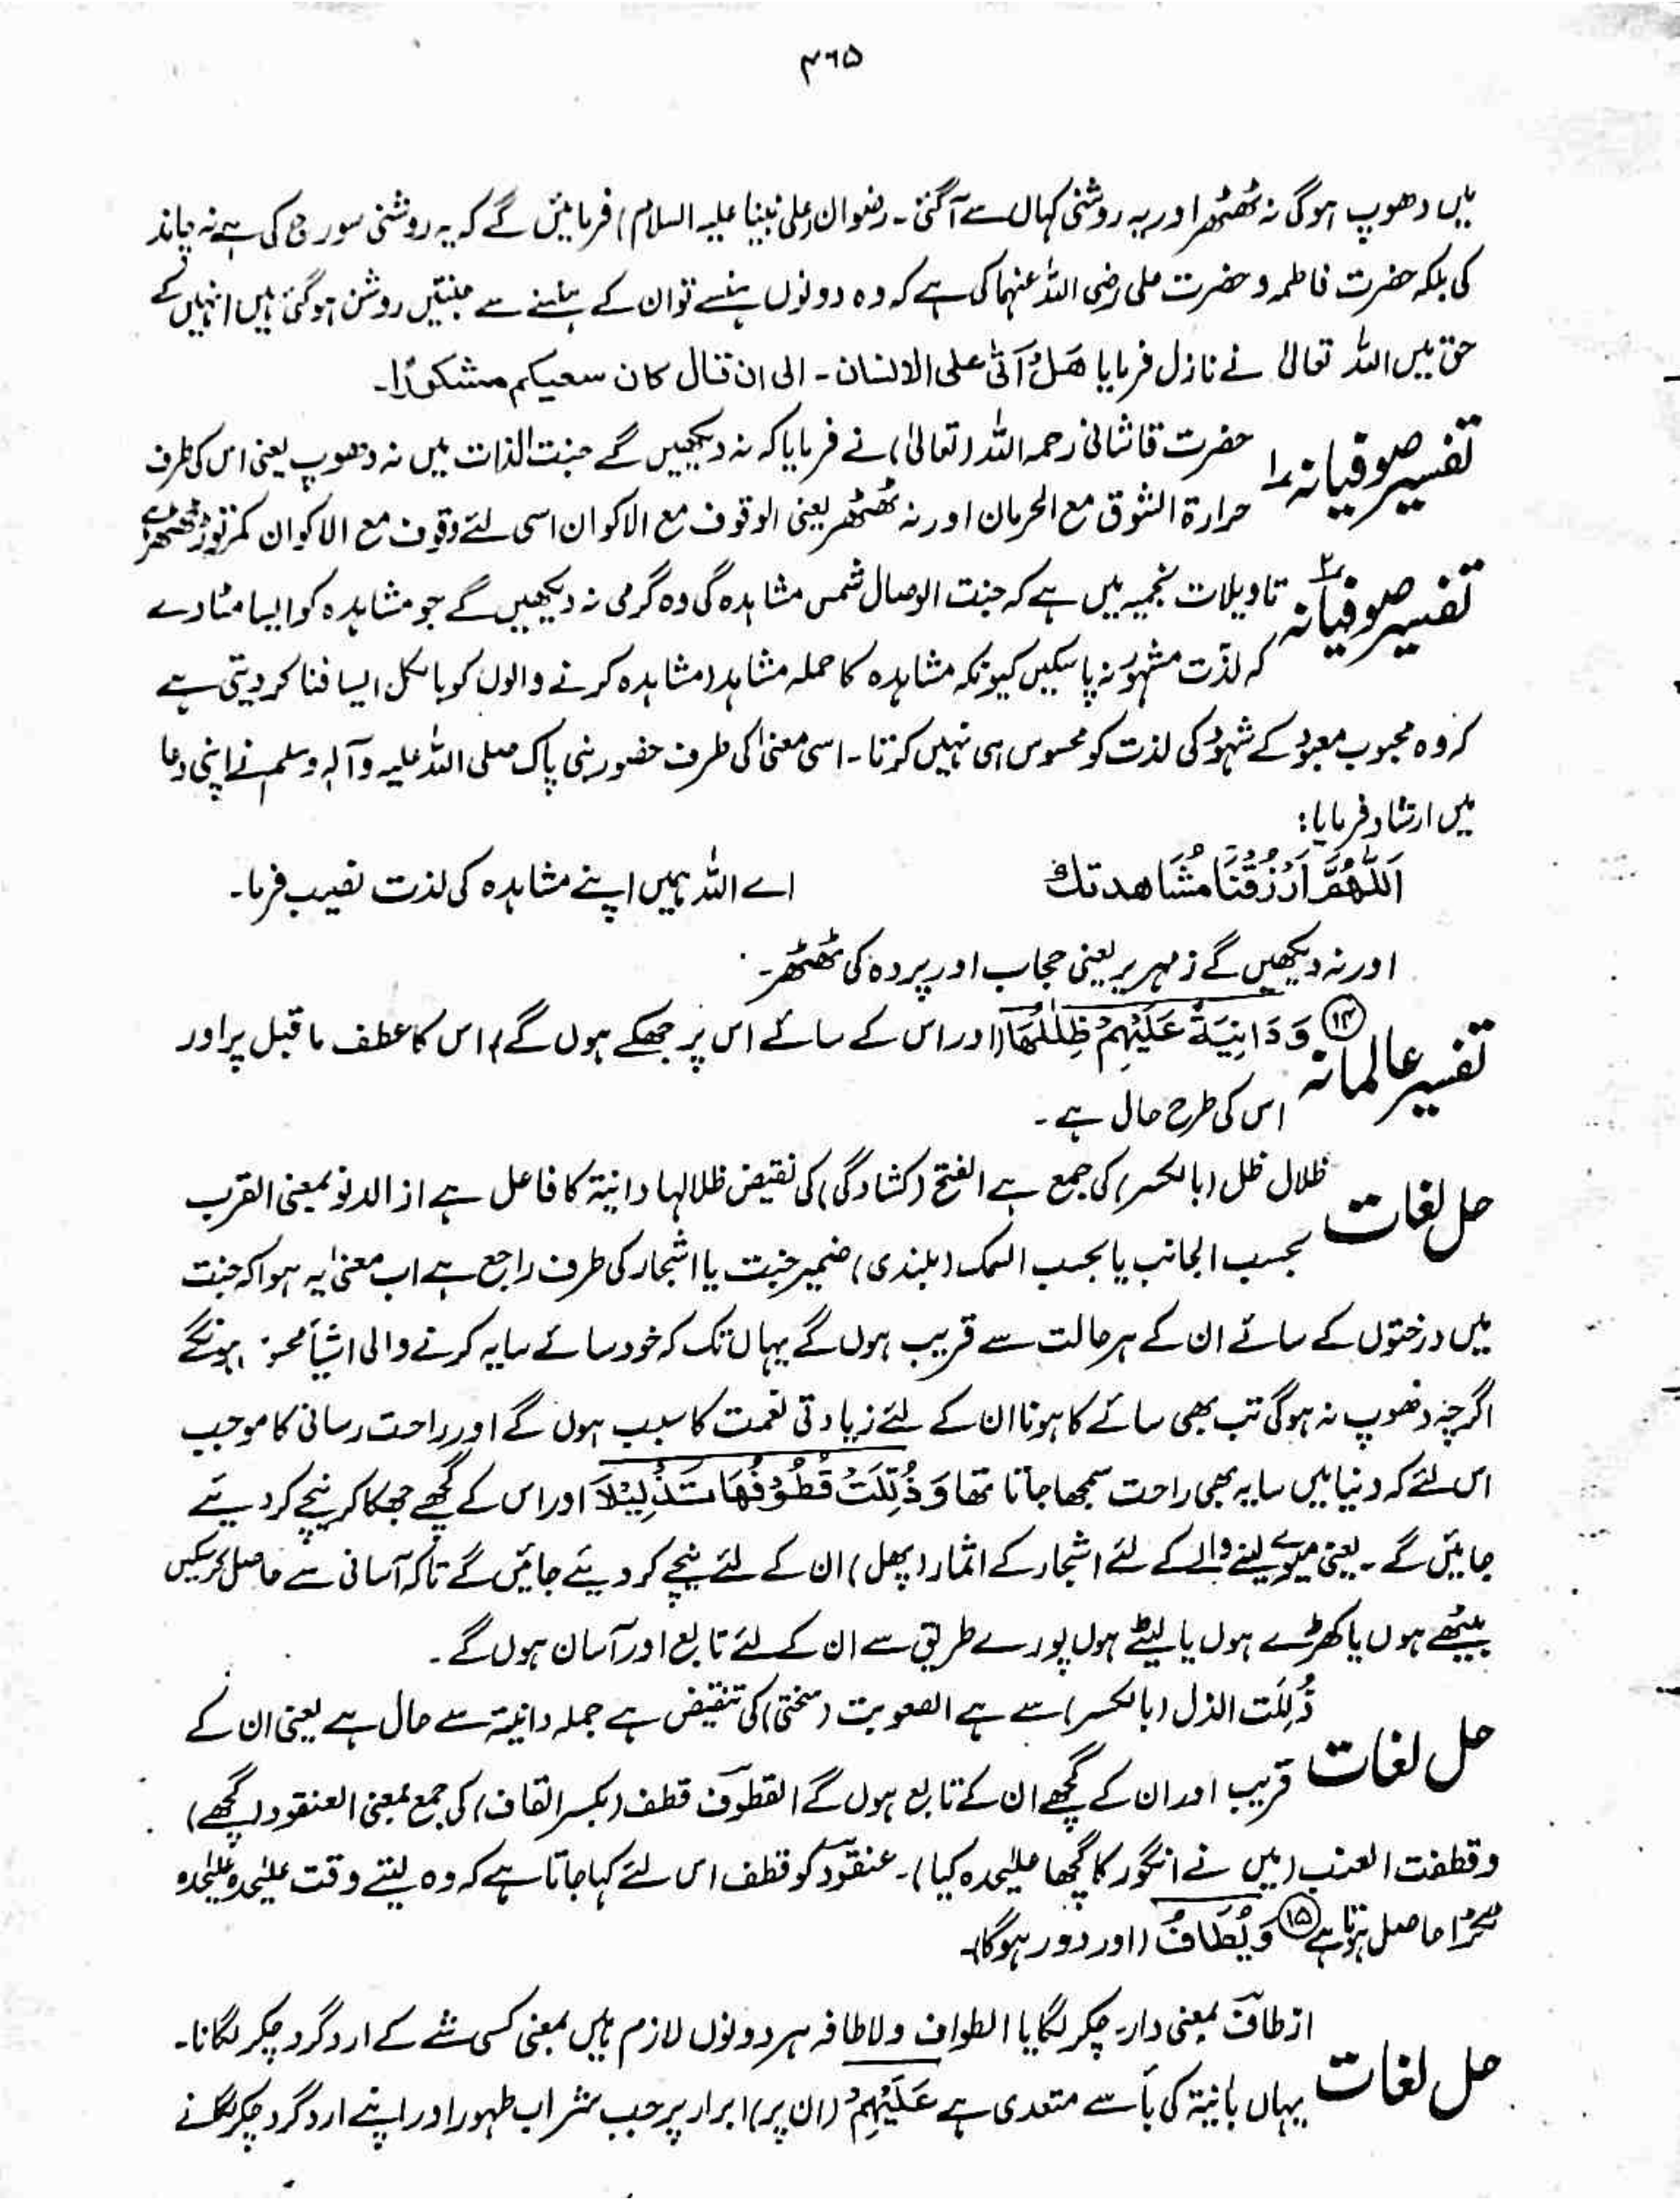 ۳۶۵
میں دھوپ ہوگی نہ ٹھٹھر اور یہ روشنی کہاں سے آگئی۔ رضوان (علی نبینا علیہ السلام) فرمائیں گے کہ یہ روشنی سورج کی ہے نہ چاند
کی بلکہ حضرت فاطمہ و حضرت علی رضی اللہ عنہما کی ہے کہ وہ دونوں ہنسے تو ان کے ہنسنے سے جنتیں روشن ہوگئی ہیں انہیں کے
حق میں اللہ تعالیٰ نے نازل فرمایا ھَلْ اَتٰی علی الانسان۔ الی ان قال کان سعیکم مشکورًا۔
تفسیر صوفیانہ ۱ حضرت قاشانی رحمہ اللہ (تعالیٰ) نے فرمایا کہ نہ دیکھیں گے جنت الذات میں نہ دھوپ یعنی اس کی طرف
حرارۃ الشوق مع الحرمان اور نہ ٹھٹھر یعنی الوقوف مع الاکوان اسی لئے وقوف مع الاکوان کمر توڑ ٹھٹھر ہے
تفسیر صوفیانہ ۲ تاویلات نجمیہ میں ہے کہ جنت الوصال شمس مشاہدہ کی وہ گرمی نہ دیکھیں گے جو مشاہدہ کو ایسا مٹادے
کہ لذت مشہود نہ پاسکیں کیونکہ مشاہدہ کا حملہ مشاہد (مشاہدہ کرنے والوں کو بالکل ایسا فنا کردیتی ہے
کہ وہ محبوب معبود کے شہود کی لذت کو محسوس ہی نہیں کرتا۔ اسی معنیٰ کی طرف حضور نبی پاک صلی اللہ علیہ وآلہ وسلم نے اپنی دعا
میں ارشاد فرمایا:
اَللّٰھُمَّ ارْزُقْنَا مُشَاھدتك اے اللہ ہمیں اپنے مشاہدہ کی لذت نصیب فرما۔
اور نہ دیکھیں گے زمہریر یعنی حجاب اور پردہ کی ٹھٹھر۔
تفسیر عالمانہ ۱۴ وَ دَانِیَۃً عَلَیْہِمْ ظِلٰلُھَا (اور اس کے سائے اس پر جھکے ہوں گے) اس کا عطف ماقبل پر اور
اس کی طرح حال ہے۔
حل لغات ظلال ظل (بالکسر) کی جمع ہے الفتح (کشادگی) کی نقیض ظلالہا دانیۃ کا فاعل ہے از الدنو بمعنی القرب
بحسب الجانب یا بحسب السمک (بلندی) ضمیر جنت یا اشجار کی طرف راجع ہے اب معنیٰ یہ ہوا کہ جنت
میں درختوں کے سائے ان کے ہر حالت سے قریب ہوں گے یہاں تک کہ خود سائے سایہ کرنے والی اشیأ ہونگے
اگرچہ دھوپ نہ ہوگی تب بھی سائے کا ہونا ان کے لئے زیادتی نعمت کا سبب ہوں گے اور راحت رسانی کا موجب
اس لئے کہ دنیا میں سایہ بھی راحت سمجھا جاتا تھا وَ ذُلِّلَتْ قُطُوْفُھَا تَذْلِیْلًا اور اس کے گچھے جھکا کر نیچے کردیئے
جائیں گے۔ یعنی میوے لینے والے کے لئے اشجار کے اثمار (پھل) ان کے لئے نیچے کردیئے جائیں گے تاکہ آسانی سے حاصل کرسکیں
بیٹھے ہوں یا کھڑے ہوں یا لیٹے ہوں پورے طریق سے ان کے لئے تابع اور آسان ہوں گے۔
حل لغات ذُلِّلَت الذل (بالکسر) سے ہے الصعوبت (سختی) کی تنقیض ہے جملہ دانیۃ سے حال ہے یعنی ان کے
قریب اور ان کے گچھے ان کے تابع ہوں گے القطوف قطف (بکسر القاف) کی جمع بمعنی العنقود (گچھے)
وقطفت العنب (میں نے انگور کا گچھا علیحدہ کیا)۔ عنقود کو قطف اس لئے کہا جاتا ہے کہ وہ لیتے وقت علیٰحدہ علیٰحدہ
حاصل ہوتا ہے ۱۵ وَ یُطَافُ (اور دور ہوگا)۔
حل لغات از طاف بمعنی دار۔ چکر لگایا الطواف ولاطافہ ہر دونوں لازم ہیں بمعنی کسی شئے کے اردگرد چکر لگانا۔
یہاں بانیۃ کی بأ سے متعدی ہے عَلَیْہِمْ (ان پر) ابرار پر جب شراب طہور اور اپنے اردگرد چکر لگانے